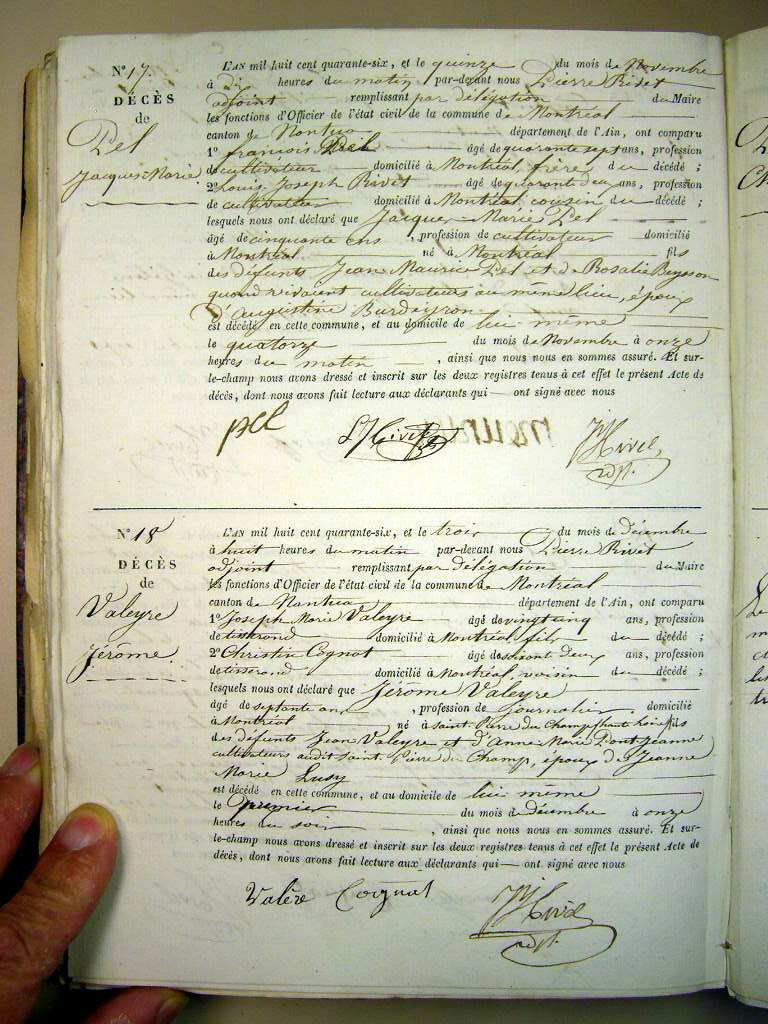 N° 17.
DÉCÈS
de
Pel
Jacques Marie
L'AN mil huit cent quarante-six, et le quinze du mois de Novembre
à dix heures du matin par-devant nous Pierre Rivet
adjoint remplissant par délégation du Maire
les fonctions d'Officier de l'état civil de la commune de Montréal
canton de Nantua département de l'Ain, ont comparu
1° françois Pel âgé de quarante sept ans, profession
de cultivateur domicilié à Montréal, frère du décédé ;
2° Louis Joseph Rivet âgé de quarante deux ans, profession
de cultivateur domicilié à Montréal, cousin du décédé ;
lesquels nous ont déclaré que Jacques Marie Pel
âgé de cinquante ans, profession de cultivateur domicilié
à Montréal né à Montréal fils
des défunts Jean Maurice Pel et de Rosalie
quand vivaient cultivateurs au même lieu, époux
D'augustine Burdeyron
est décédé en cette commune, et au domicile de lui même
le quatorze du mois de Novembre à onze
heures du matin, ainsi que nous nous en sommes assuré. Et sur-
le-champ nous avons dressé et inscrit sur les deux registres tenus à cet effet le présent Acte de
décès, dont nous avons fait lecture aux déclarants qui — ont signé avec nous
pel LJ Rivet Rivet
adjt.
N° 18
DÉCÈS
de
Valeyre
Jérôme.
L'AN mil huit cent quarante-six, et le trois du mois de Décembre
à huit heures du matin par-devant nous Pierre Rivet
adjoint remplissant par délégation du Maire
les fonctions d'Officier de l'état civil de la commune de Montréal
canton de Nantua département de l'Ain, ont comparu
1° Joseph Marie Valeyre âgé de vingt cinq ans, profession
de tisserand domicilié à Montréal, fils du décédé ;
2° Christin Cognat âgé de soixante deux ans, profession
de tisserand domicilié à Montréal, voisin du décédé ;
lesquels nous ont déclaré que Jérôme Valeyre
âgé de septante ans, profession de journalier domicilié
à Montréal né à Saint Pierre du Champ (haute Loire) fils
des défunts Jean Valeyre et d'Anne Marie Pont Jeanne
cultivateurs audit Saint Pierre du Champ, époux de Jeanne
Marie Lusy
est décédé en cette commune, et au domicile de lui même
le premier du mois de décembre à onze
heures du soir, ainsi que nous nous en sommes assuré. Et sur-
le-champ nous avons dressé et inscrit sur les deux registres tenus à cet effet le présent Acte de
décès, dont nous avons fait lecture aux déclarants qui — ont signé avec nous
Valère Cognat Rivet
adjt.